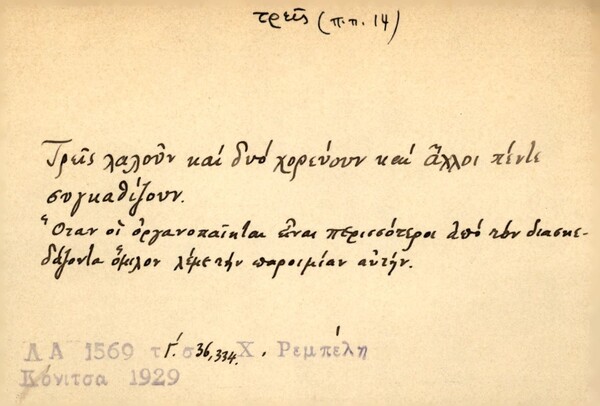 τρεῖς (π.π. 14)
Τρεῖς λαλοῦν καί δυό χορεύουν καί ἄλλοι πέντε
συγκαθίζουν.
Ὅταν οἱ ὀργανοπαῖκται εἶναι περισσότεροι ἀπό τόν διασκε-
δάζοντα ὅμιλον λέμε τήν παροιμίαν αὐτήν.
Λ Α 1569 τ. Γ΄. σ 36, 334. Χ. Ρεμπέλη
Κόνιτσα 1929